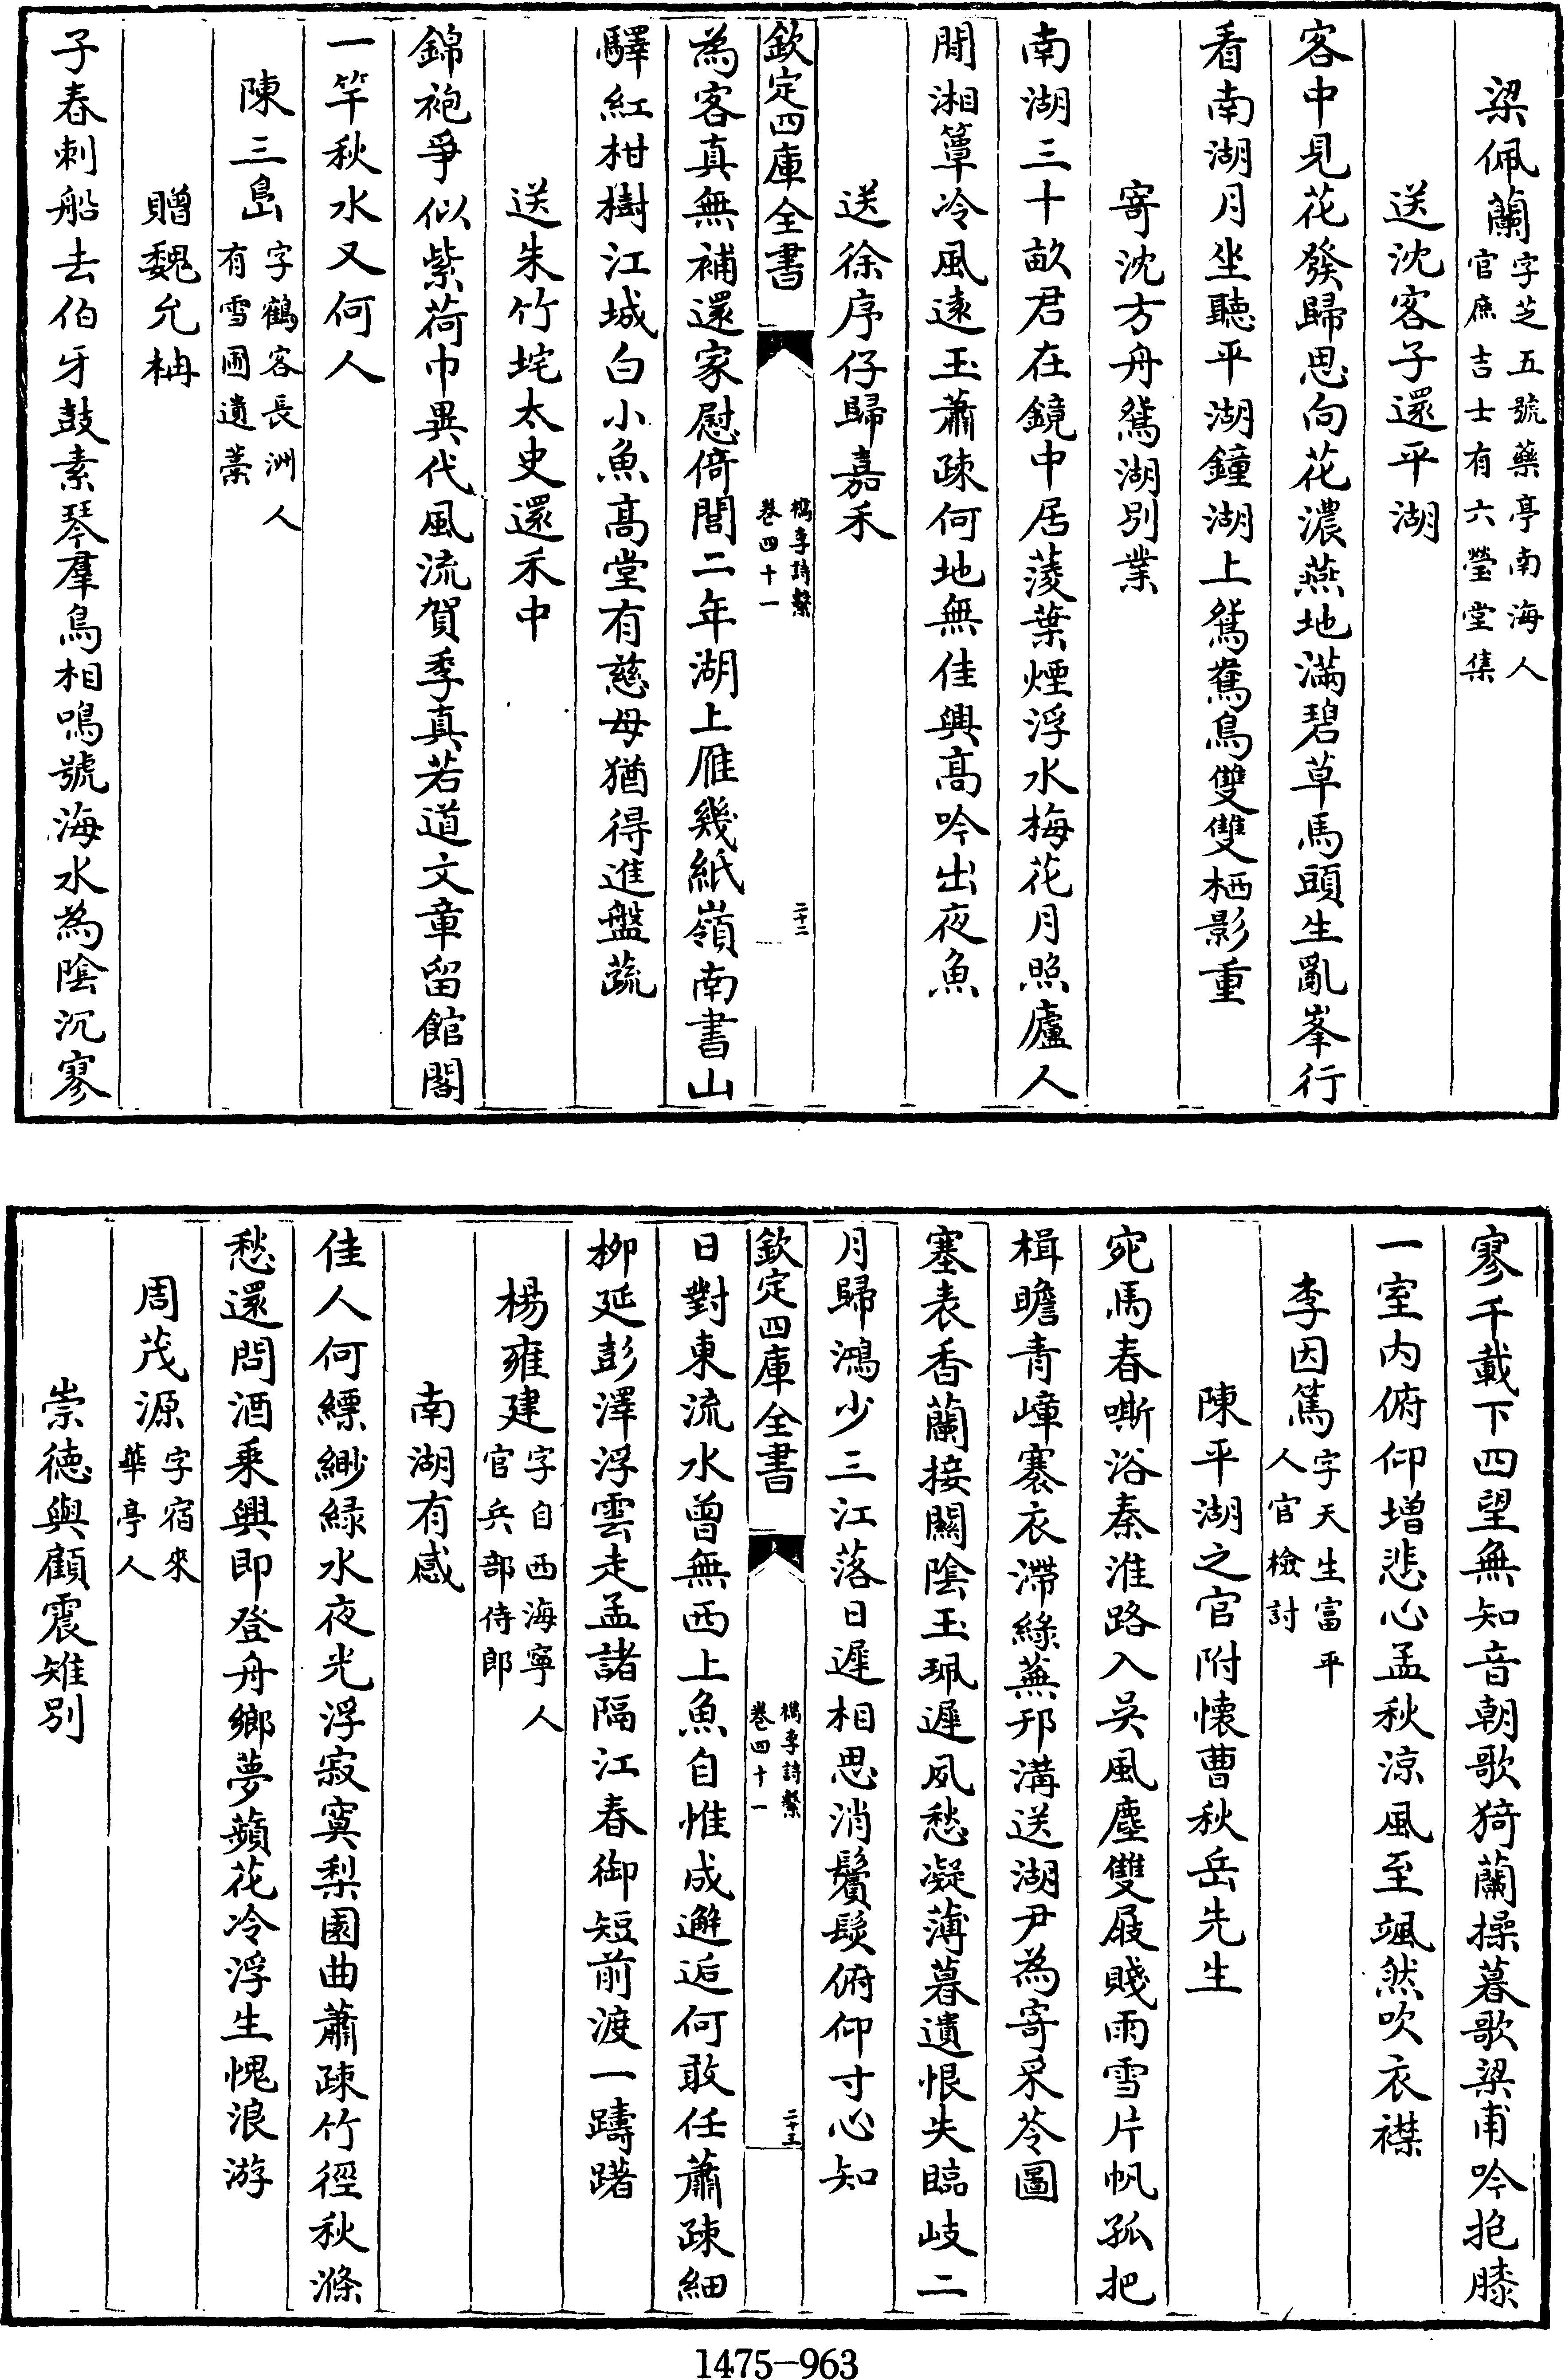 梁佩蘭字芝五號藥亭南海人官庶吉士有六瑩堂集
送沈客子還平湖
客中見花發歸思向花濃燕地滿碧草馬頭生亂峯行
看南湖月坐聽平湖鐘湖上鴛鴦鳥雙雙栖影重
寄沈方舟鴛湖别業
南湖三十畝君在鏡中居薐葉煙浮水梅花月照廬人
閒湘簟冷風遠玉蕭疎何地無佳興高吟出夜魚
送徐序仔歸嘉禾
欽定四庫全書
檇李詩繫
卷四十一
二十二
為客真無補還家慰倚閭二年湖上雁幾紙嶺南書山
驛紅柑樹江城白小魚高堂有慈母猶得進盤蔬
送朱竹垞太史還禾中
錦袍爭似紫荷巾異代風流賀季真若道文章留館閣
一竿秋水又何人
陳三島字鶴客長洲人有雪圃遺藁
贈魏允枏
子春刺船去伯牙鼓素琴羣鳥相鳴號海水為陰沉寥
寥千載下四望無知音朝歌猗蘭操暮歌梁甫吟抱膝
一室内俯仰增悲心孟秋涼風至颯然吹衣襟
李因篤字天生富平人官檢討
陳平湖之官附懐曹秋岳先生
宛馬春嘶浴秦淮路入吳風塵雙屐賤雨雪片帆孤把
楫瞻青嶂褰衣滯綠蕪邗溝送湖尹為寄采苓圖
塞表香蘭接闗陰玉珮遲夙愁凝薄暮遺恨失臨岐二
月歸鴻少三江落日遲相思消鬢髮俯仰寸心知
欽定四庫全書
檇李詩繫
卷四十一
二十三
日對東流水曾無西上魚自惟成邂逅何敢任蕭疎細
柳延彭澤浮雲走孟諸隔江春御短前渡一躊躇
楊雍建字自西海寧人官兵部侍郎
南湖有感
佳人何縹緲緑水夜光浮寂寞梨園曲蕭疎竹徑秋滌
愁還問酒乗興即登舟鄉夢蘋花冷浮生愧浪游
周茂源字宿來華亭人
崇徳與顧震雉别
1475-963